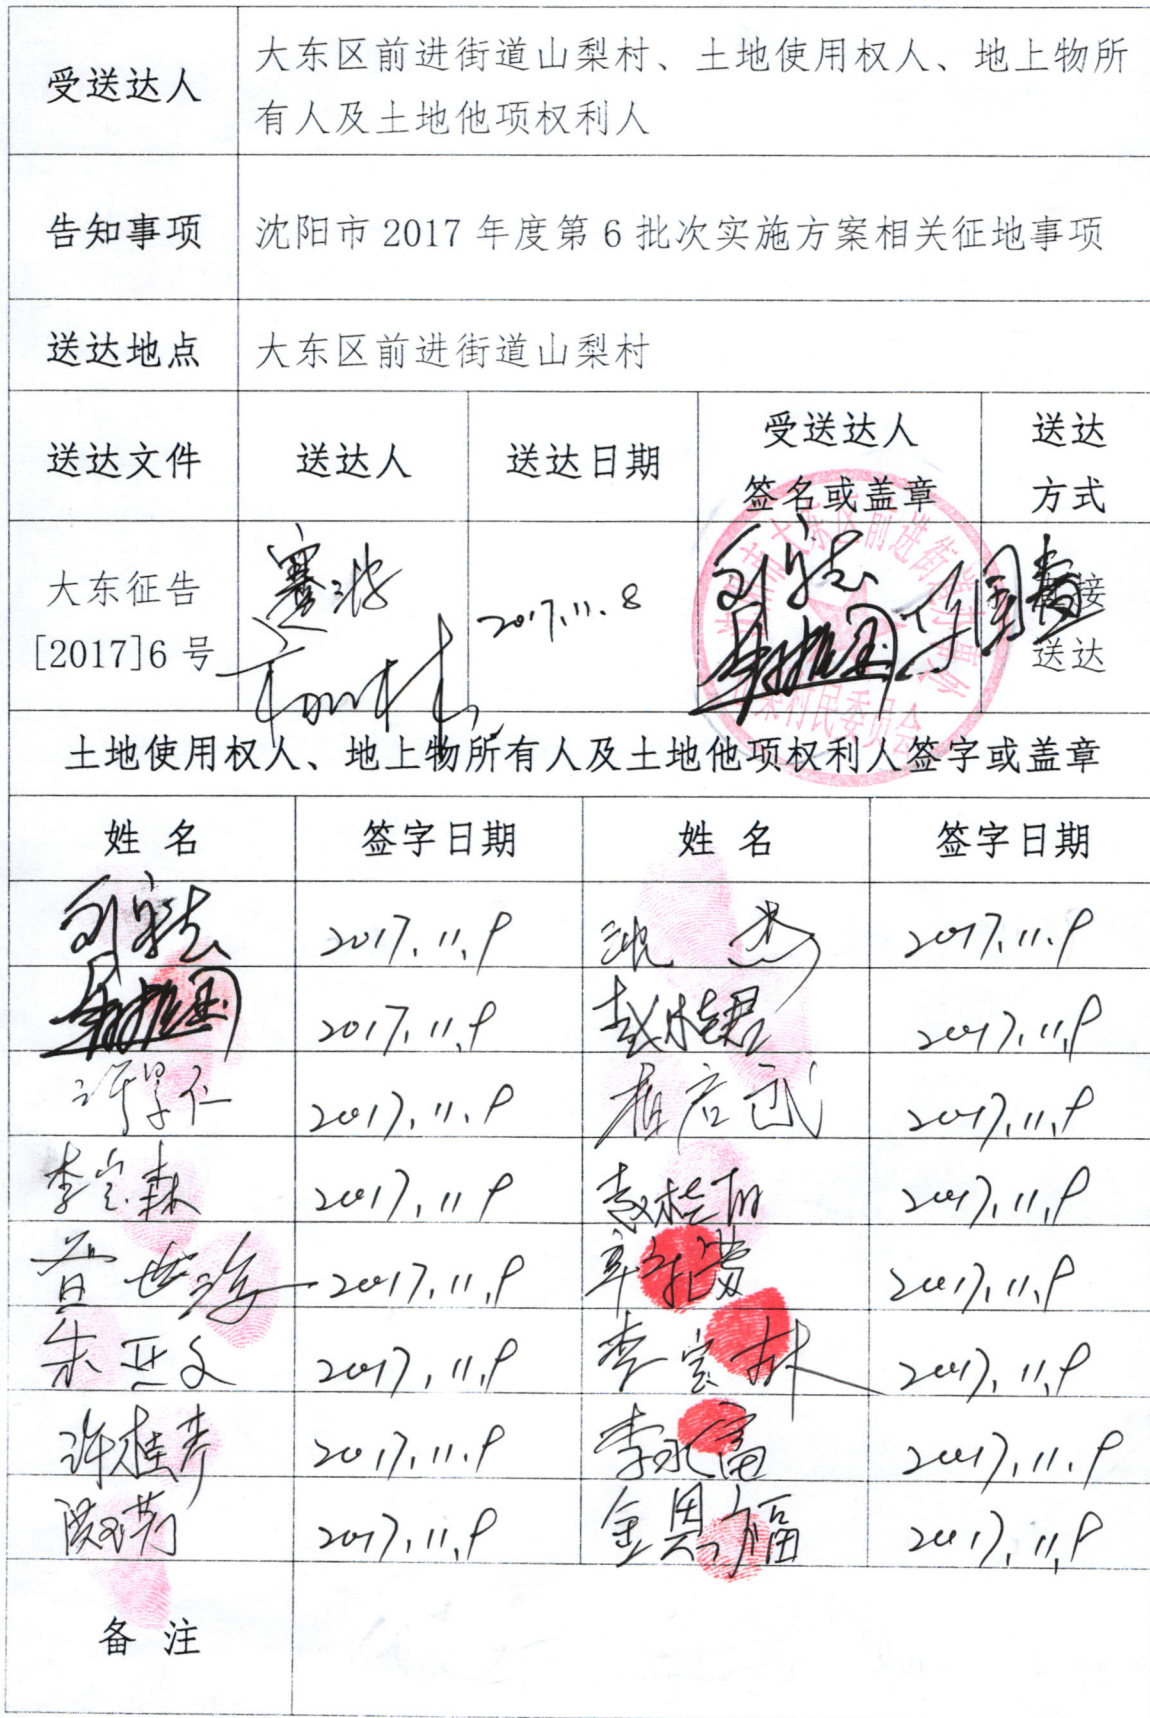 受送达人
大东区前进街道山梨村、土地使用权人、地上物所
有人及土地他项权利人
告知事项
沈阳市 2017 年度第 6 批次实施方案相关征地事项
送达地点
大东区前进街道山梨村
送达文件
送达人
送达日期
受送达人
签名或盖章
送达
方式
大东征告
[2017]6 号
2017.11.8
直接
送达
土地使用权人、地上物所有人及土地他项权利人签字或盖章
姓 名
签字日期
姓 名
签字日期
2017.11.9
沈 杰
2017.11.9
2017.11.9
2017.11.9
2017.11.9
2017.11.9
李宝森
2017.11.9
2017.11.9
2017.11.9
2017.11.9
朱亚文
2017.11.9
李宝林
2017.11.9
许桂芳
2017.11.9
李永富
2017.11.9
2017.11.9
金恩福
2017.11.9
备 注